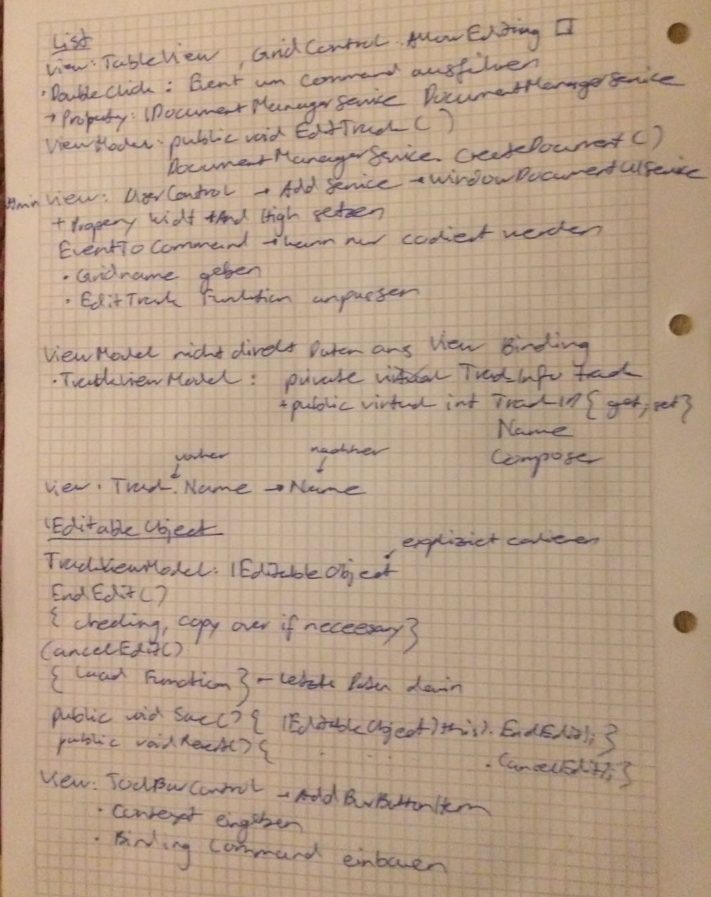 List
View: TableView, GridControl. AllowEditing
• DoubleClick: Event um Command ausführen
→ Property: IDocumentManagerService DocumentManagerService
ViewModel: public void EditTrack()
DocumentManagerService.CreateDocument()
View: UserControl → Add Service → WindowDocumentUIService
+ Propery Widt + And High setzen
EventToCommand → kann nur codiert werden
• Gridname geben
• EditTrack Funktion anpassen
ViewModel nicht direkt Daten ans View Binding
• TrackViewModel: private virtual TrackInfo track
+ public virtual int TrackID { get; set }
Name
Composer
vorher nachher
View: Track.Name → Name
IEditableObject
expliziet codieren
TrackViewModel: IEditableObject
EndEdit()
{ checking, copy over if neceesary }
CancelEdit()
{ Load Function } – letzte Daten darin
public void Save() { IEditableObject)this).EndEdit(); }
public void Reset() { . . . . . . . .CancelEdit(); }
View: ToolBarControl → Add BarButtonItem
• Content eingeben
• Binding Command einbauen